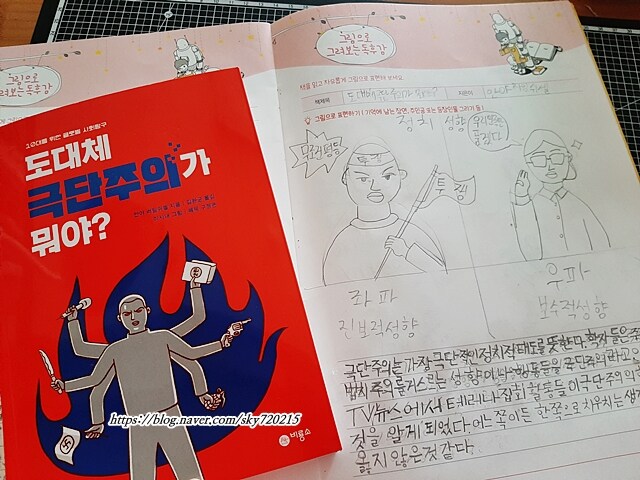 그림으로
그려보는 독후감
10대를 위한 글로벌 사회탐구
도대체
극단주의가
뭐야?
비룡소
https://blog.naver.com/sky720215
그림으로
그려보는 독후감
책을 읽고 자유롭게 그림으로 표현해 보세요.
책제목 도대체 극단주의가 뭐야?
그림으로 표현하기 (기억에 남는 장면, 주인공 또는 등장인물 그리기 등)
정치 성향
무조건 평등
투쟁
투쟁
좌파
진보적성향
우파
보수적성향
극단주의는 가장 극단적이 정치적태도를 뜻한다.
법치주의를 거스르는 성향이나 행동들을 극단주의라고
TV뉴스에서 테러나 집회 활동들이 극단주의의
것을 알게 되었다. 어느 쪽이든 한쪽으로 치우치는
옳지 않은것 같다.